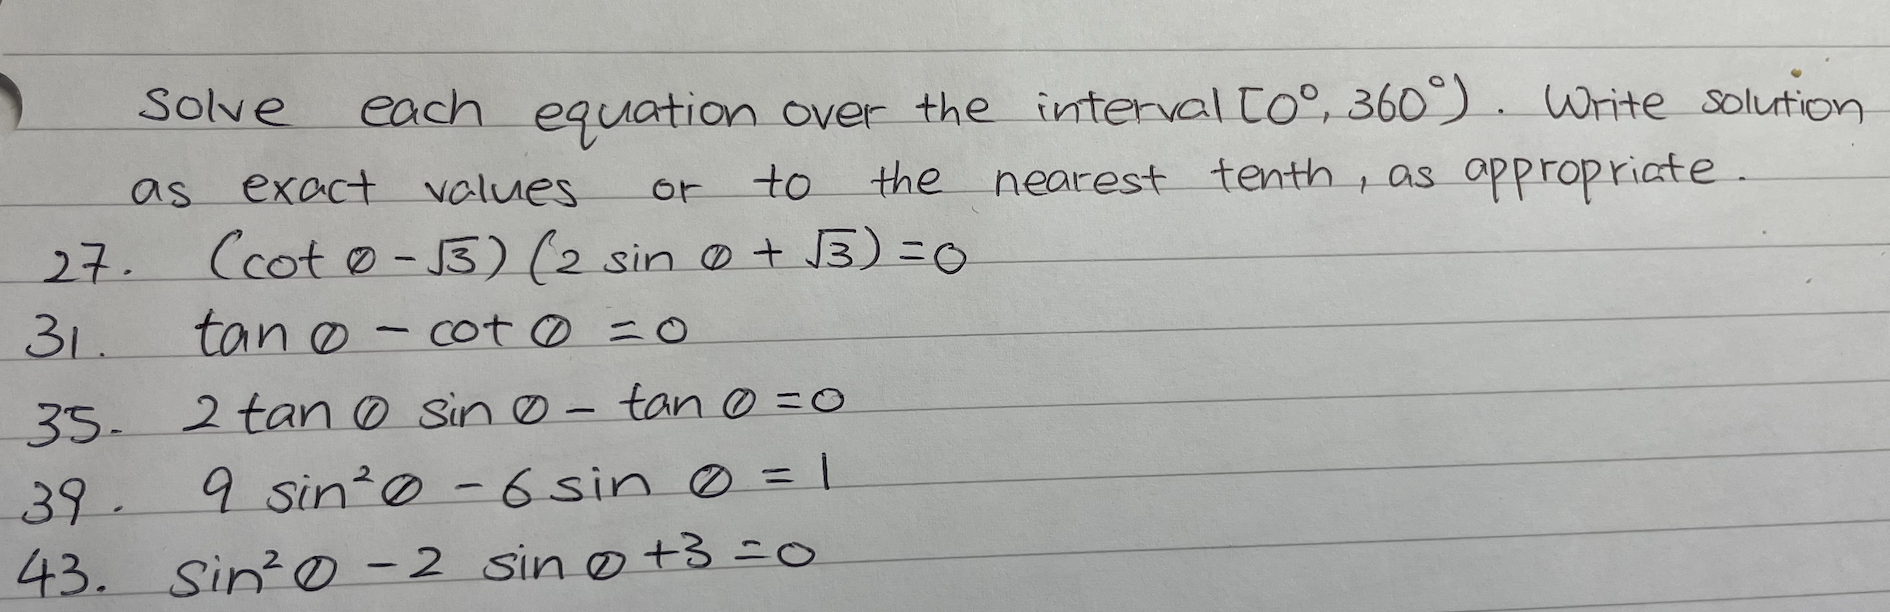 Solve each equation over the interval [0°, 360°). Write solution
as exact values or to the nearest tenth, as appropriate.
27. (cot θ - √3) (2 sin θ + √3) = 0
31. tan θ - cot θ = 0
35. 2 tan θ sin θ - tan θ = 0
39. 9 sin²θ - 6 sin θ = 1
43. sin²θ - 2 sin θ + 3 = 0